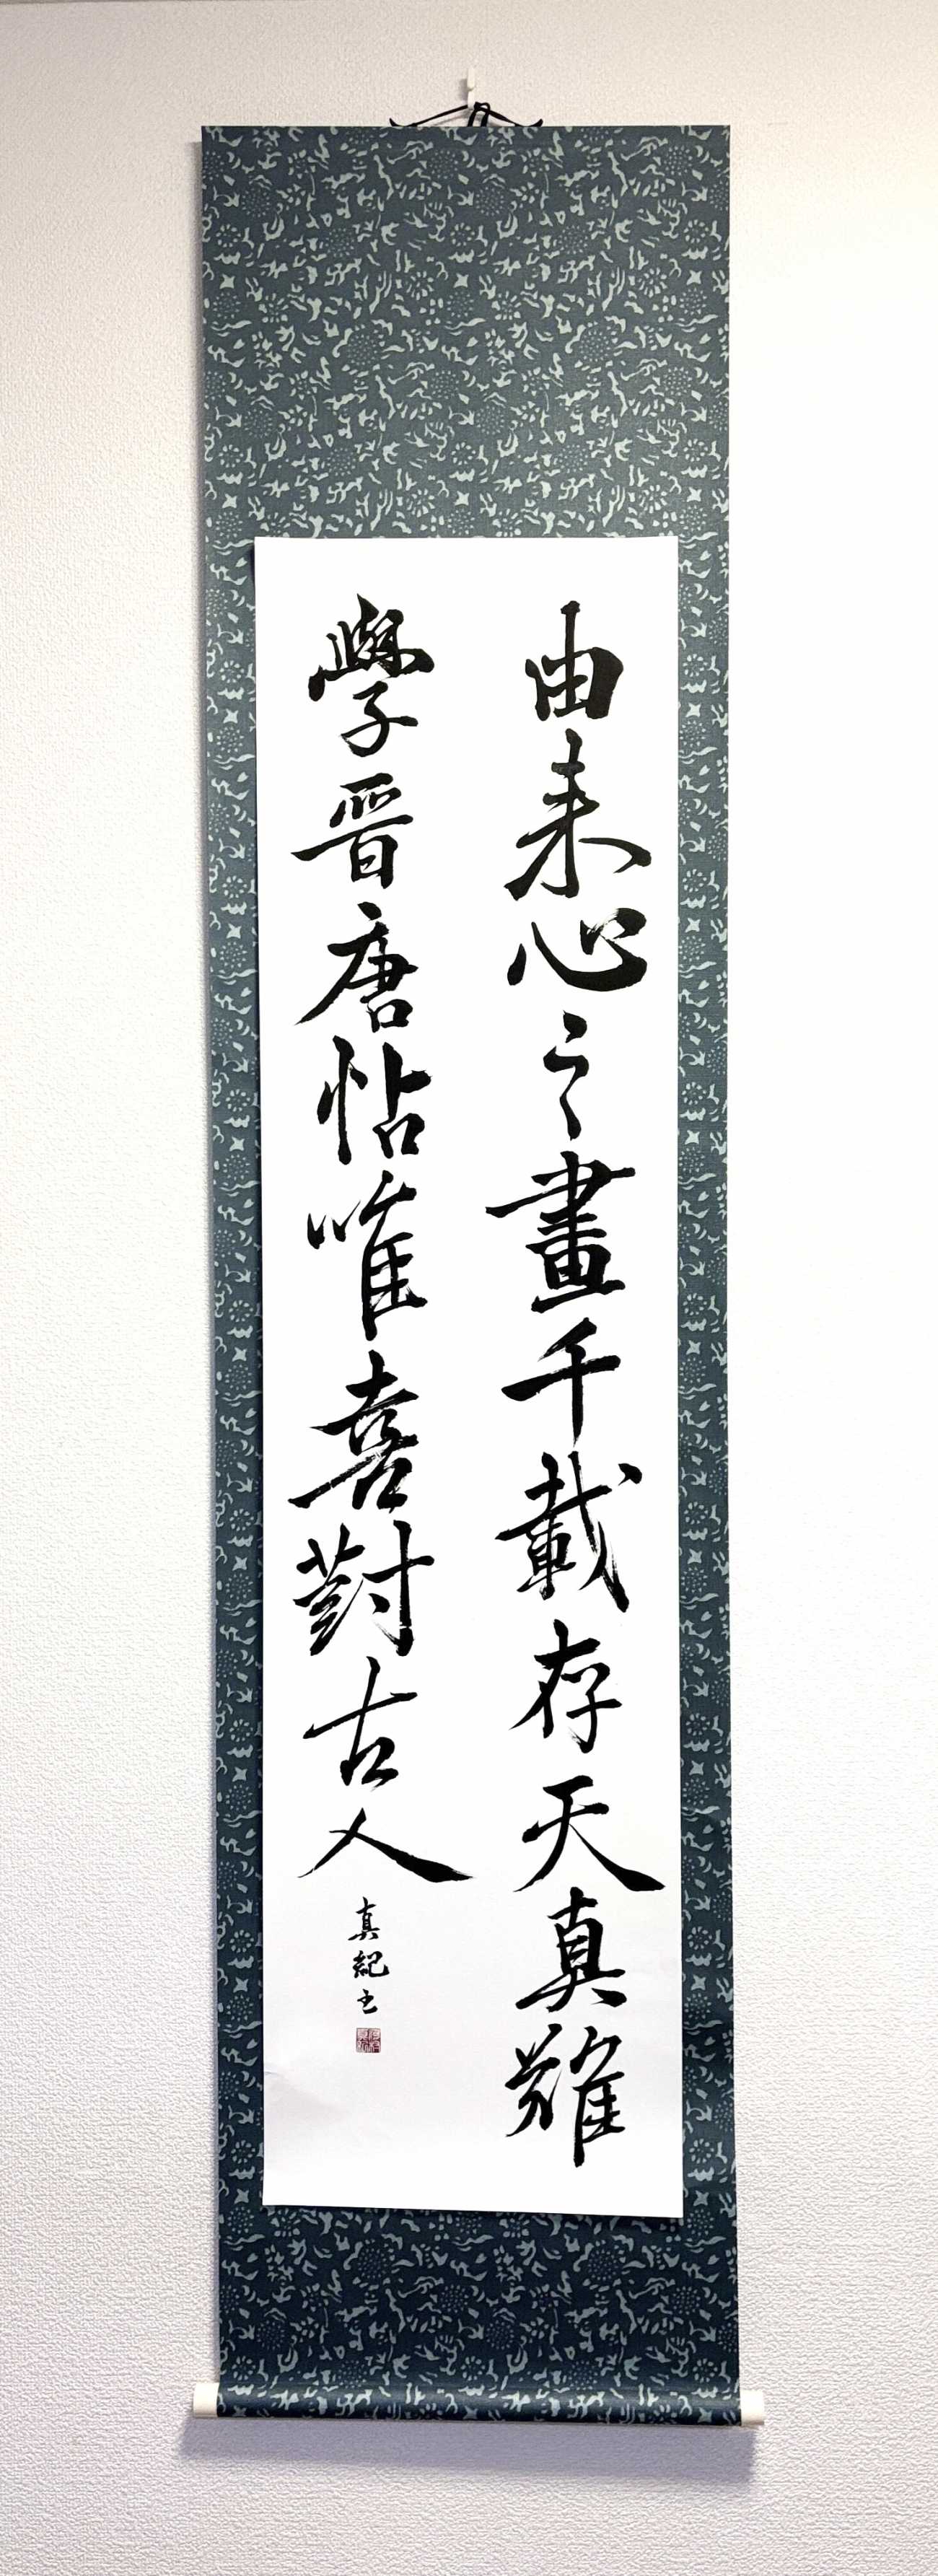 由来心之畫千載存天真雖
學晋唐帖唯喜對古人
真紀書